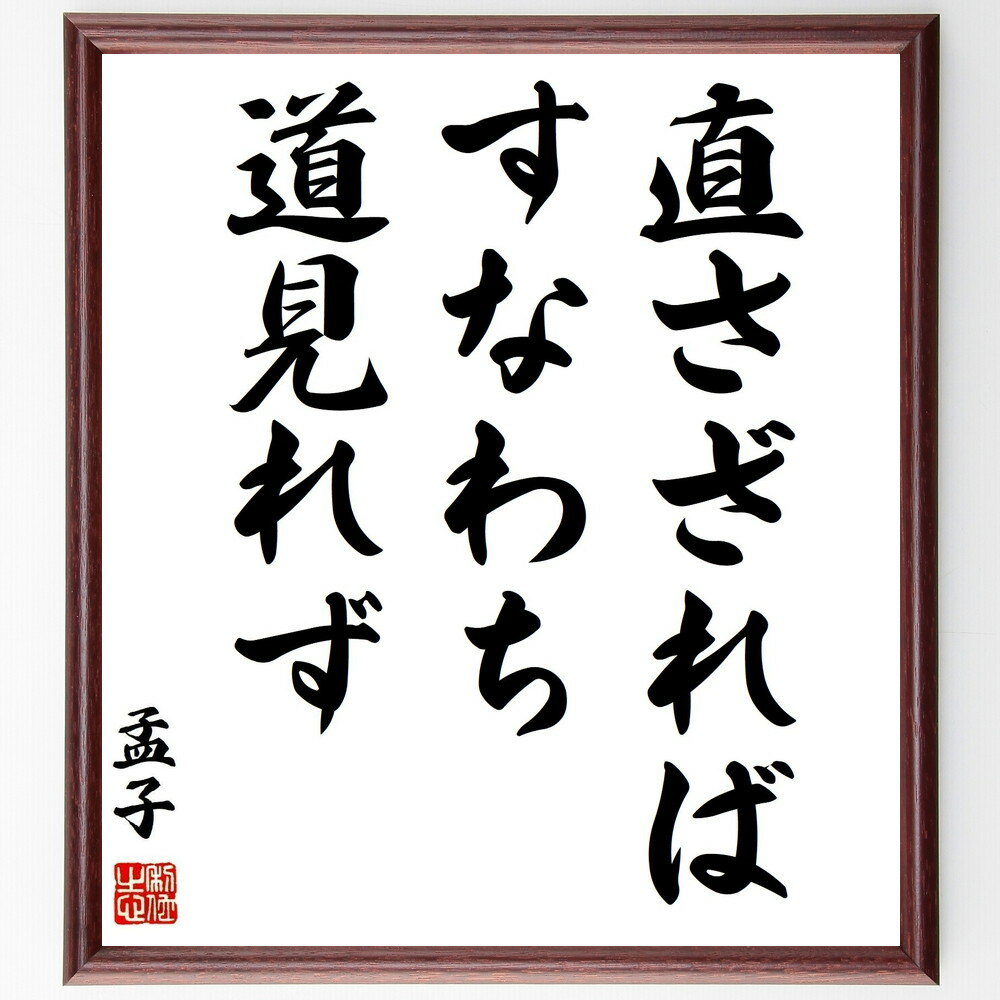 直さざれば
すなわち
道見れず
孟子